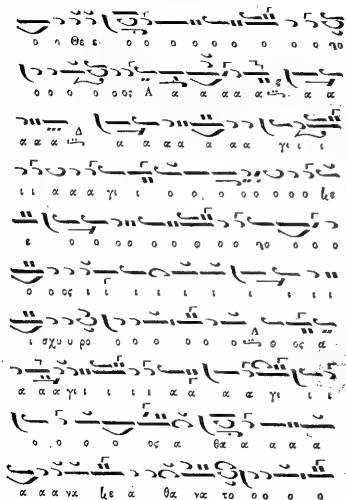 ο η Θε ε ο ο ο ο ο ο ο ο ο ηο
ο ο ο ο ο ος Α α α α α α α α
α α α α α α α α α α γι ι ι
ι ι α α α γι ι ο ο ο ο ο ο ο ο κε
ε ο ο ο ο ο ο ο ηο ο ο ο
ο ο ος ι ι ι ι ι ι ι ι ι ι
ι σχυ υ ρο ο ο ο ο ο ο ο ο ος α
α α α γι ι ι ι ι α α α α α γι
ο ο ο ο ο ος α θα α α α α
α α α να κε α θα να το ο ο ο ο